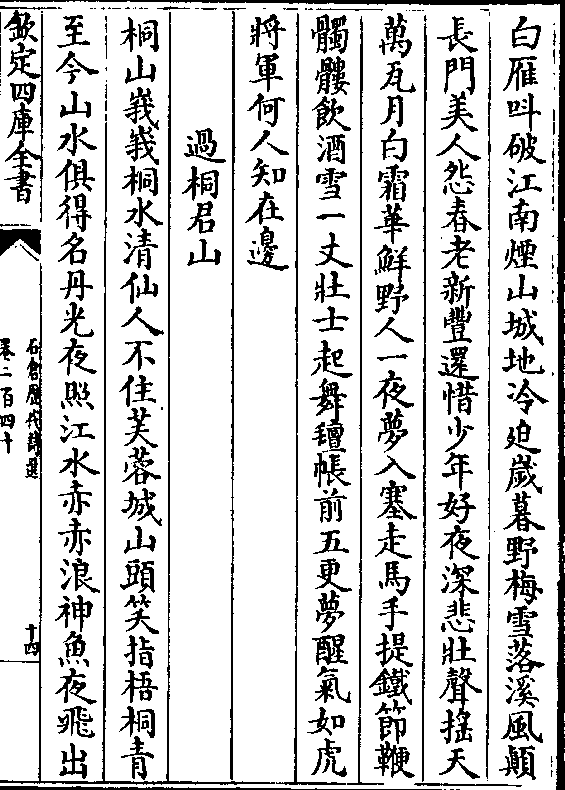 白雁呌破江南煙山城地冷廹歲暮野梅雪落溪風顛
長門美人怨春老新豐還惜少年好夜深悲壯聲摇天
萬瓦月白霜華鮮野人一夜夢入塞走馬手提鐵節鞭
髑髏飲酒雪一丈壯士起舞氊帳前五更夢醒氣如虎
將軍何人知在邊
過桐君山
桐山峩峩桐水清仙人不住芙蓉城山頭笑指梧桐青
至今山水俱得名丹光夜照江水赤赤浪神魚夜飛出
欽定四庫全書
石倉歷代詩選
卷二百四十
十四